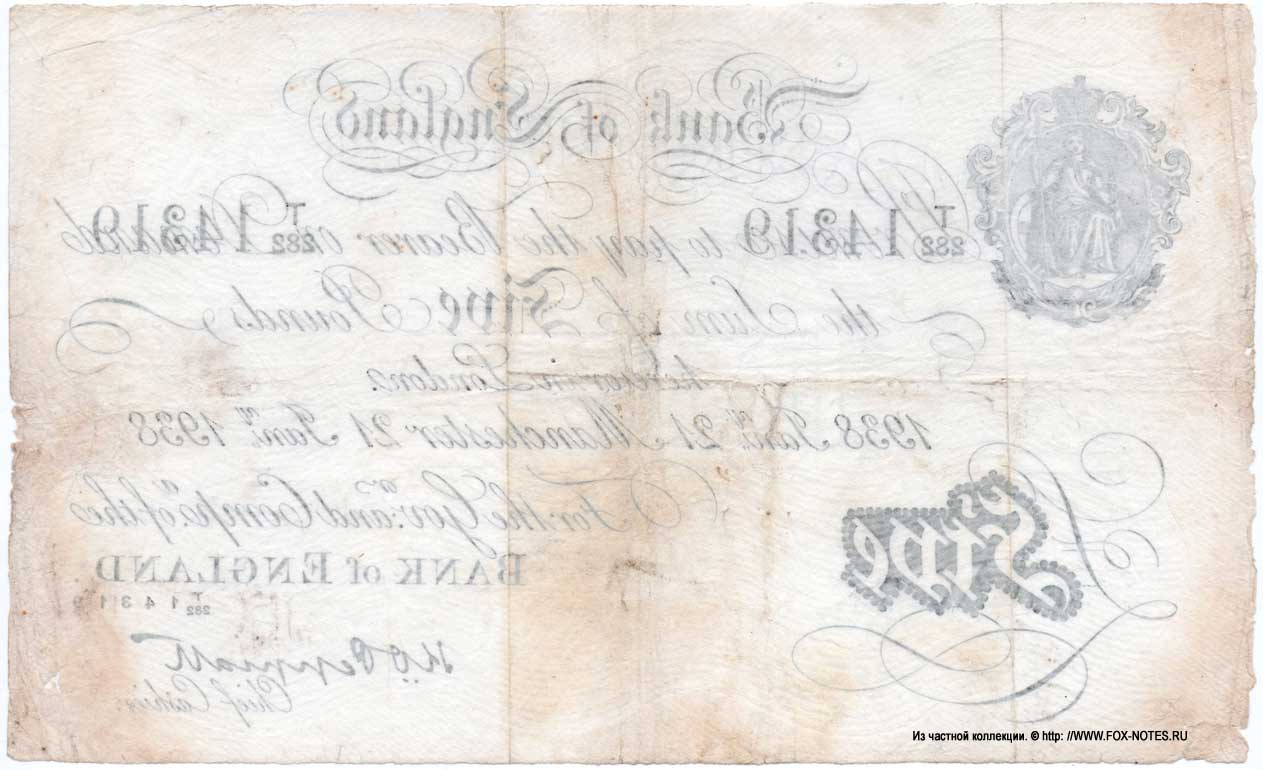 Bank of England
T/282 14319 to pay the Bearer on T/282 14319
the Sum of Five Pounds
here or in London.
1938 Jany. 21 Manchester 21 Jany. 1938
For the Govr. and Compa. of the
BANK of ENGLAND
Five
T/282 14319
Chief Cashier.
Из частной коллекции. © http: //WWW.FOX-NOTES.RU